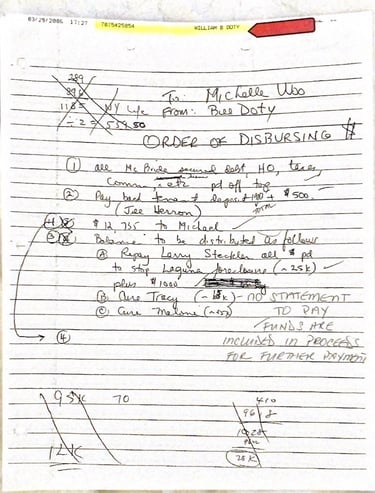 03/29/2005 17:27 7875425854 WILLIAM B DOTY
289
NY Life
To: Michelle Ubo
From: Bill Doty
ORDER OF DISBURSING $
① all McBride secured debt, HO, taxes,
Comm, etc pd off top
② Pay bad tenant deposit + $500
(Jee Herron)
$12,755 to Michael
Balance to be distributed as follows
Ⓐ Repay Larry Steckler all $ pd
to stop Laguna foreclosure (~25k)
plus $1000
Ⓑ Cure Tracy (~18k) - NO STATEMENT
TO PAY
Ⓒ Cure
FUNDS ARE
④ INCLUDED IN PROCEEDS
FOR FURTHER PAYMENT
95k 70 410
96
12k
28k